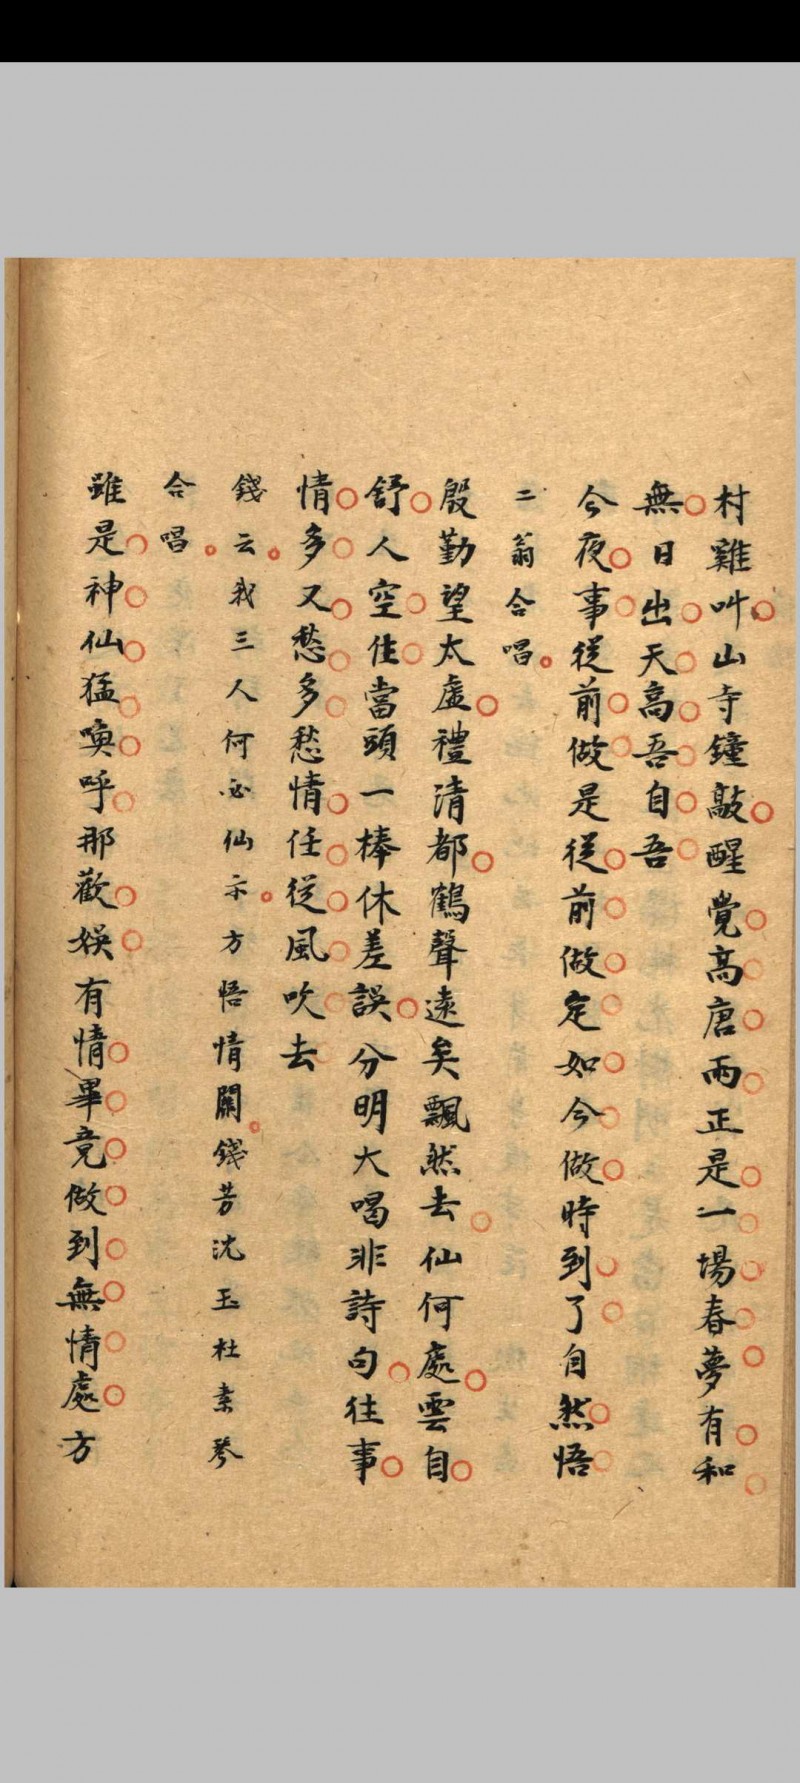 村雞叫山寺鐘敲醒覺高唐雨正是一場春夢有和
無日出天高吾自吾
今夜事從前做是從前做定如今做時到了自然悟
二翁合唱
殷勤望太虛禮清都鶴聲遠矣飄然去仙何處雲自
舒人空住當頭一棒休差誤分明大喝非詩句往事
情多又愁多愁情任從風吹去
錢云我三人何必仙示方悟情關錢芳沈玉杜素琴
合唱
雖是神仙猛喚呼那歡娛有情畢竟做到無情處方